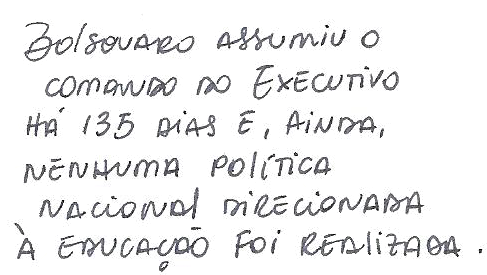 Bolsonaro assumiu o
comando do Executivo
há 135 dias e, ainda,
nenhuma política
nacional direcionada
à educação foi realizada.